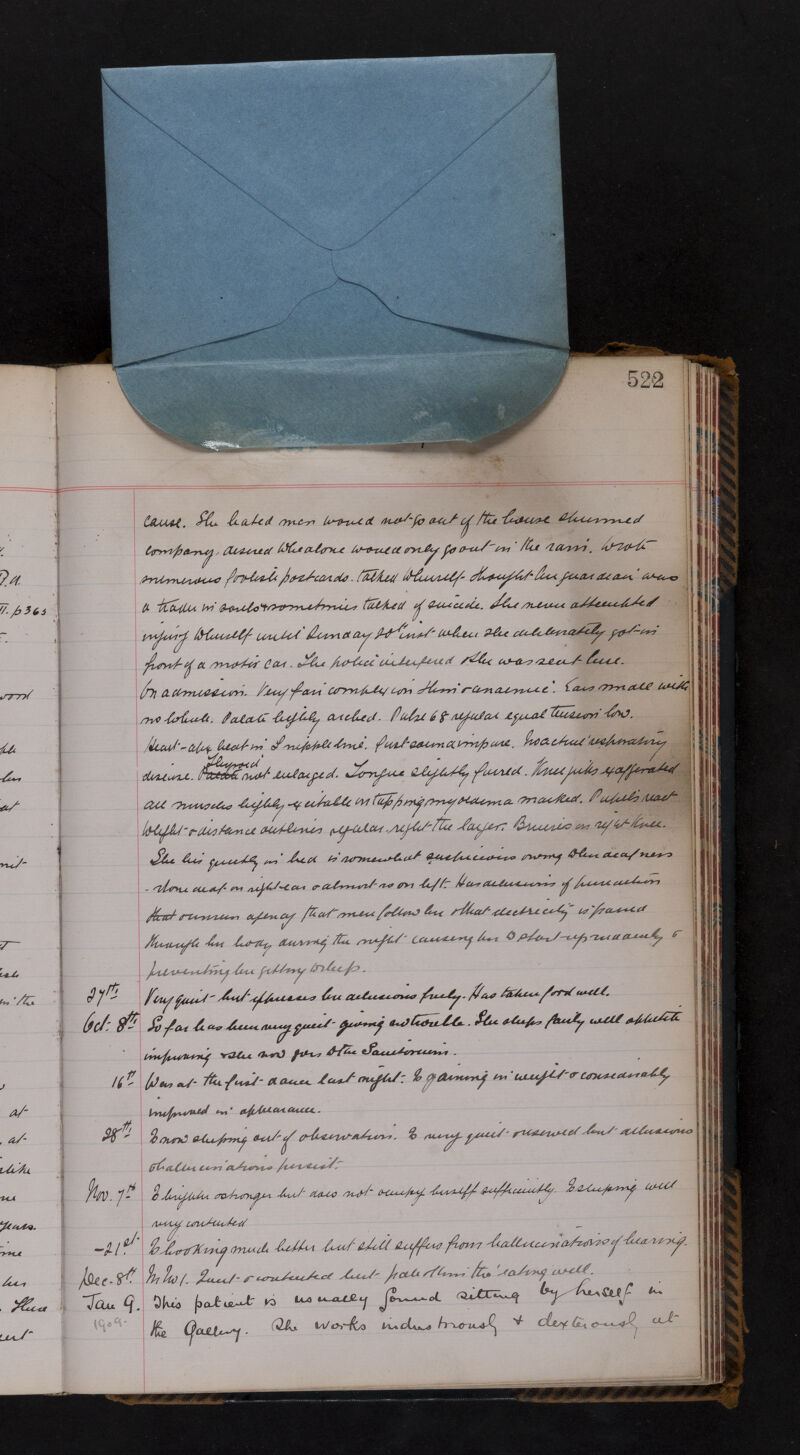 522
cause. She hated men would not go out of the house shunned
company. desired to be alone would only go out in the rain. Wrote
numerous foolish postcards. talked to herself thought her guardian was
a trader in souls & sometimes talked of suicide. She never attempted
injury to herself until Sunday 20th inst when she deliberately got in
front of a motor car. The police interfered & she was sent here.
On admission. Very fair complexion thin & anaemic. Ears small with
no lobule. Palate highly arched. Pulse 68 regular equal tension low.
Heart - apex beat in L nipple line. first sound impure. No active respiratory
disease. Thyroid not enlarged. Tongue slightly furred. Knee jerks exaggerated
all muscles highly excitable on tapping myoedema marked. Pupils react
to light & distance outlines regular. right the larger. Bruises on right knee.
She lies quietly in bed is somewhat suspicious owing to her deafness
- stone deaf on right ear & almost so on left. Has delusions of persecution
that unseen agency that men follow her & that electricity is passed
through her body during the night causing her to start up suddenly &
preventing her getting to sleep.
27th Very quiet but expresses her delusions freely. Has taken food well.
Oct. 8th So far has been very quiet giving no trouble. She sleeps fairly well appetite
improving & she now goes to the Sanitorium.
16th Was at the first dance last night. Is gaining in weight & considerably
improved in appearance.
28th Is now sleeping out of observation. Is very quiet & reserved but delusions
& hallucinations persist.
Nov. 7th Is brighter & stronger but does not occupy herself sufficiently. Is sleeping well
very contented
- 21st. Is looking much better but still suffers from hallucinations of hearing.
Dec. 8th. Quiet & contented but pale & thin tho' eating well.
Jan 9. This patient is usually found sitting by herself in
1909. the Gallery. She works industriously & dexterously at